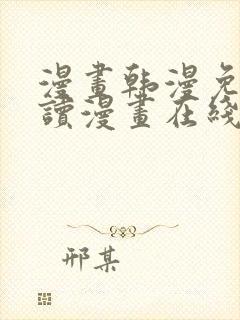 漫畫韩漫免
讀漫畫在綫
邢某